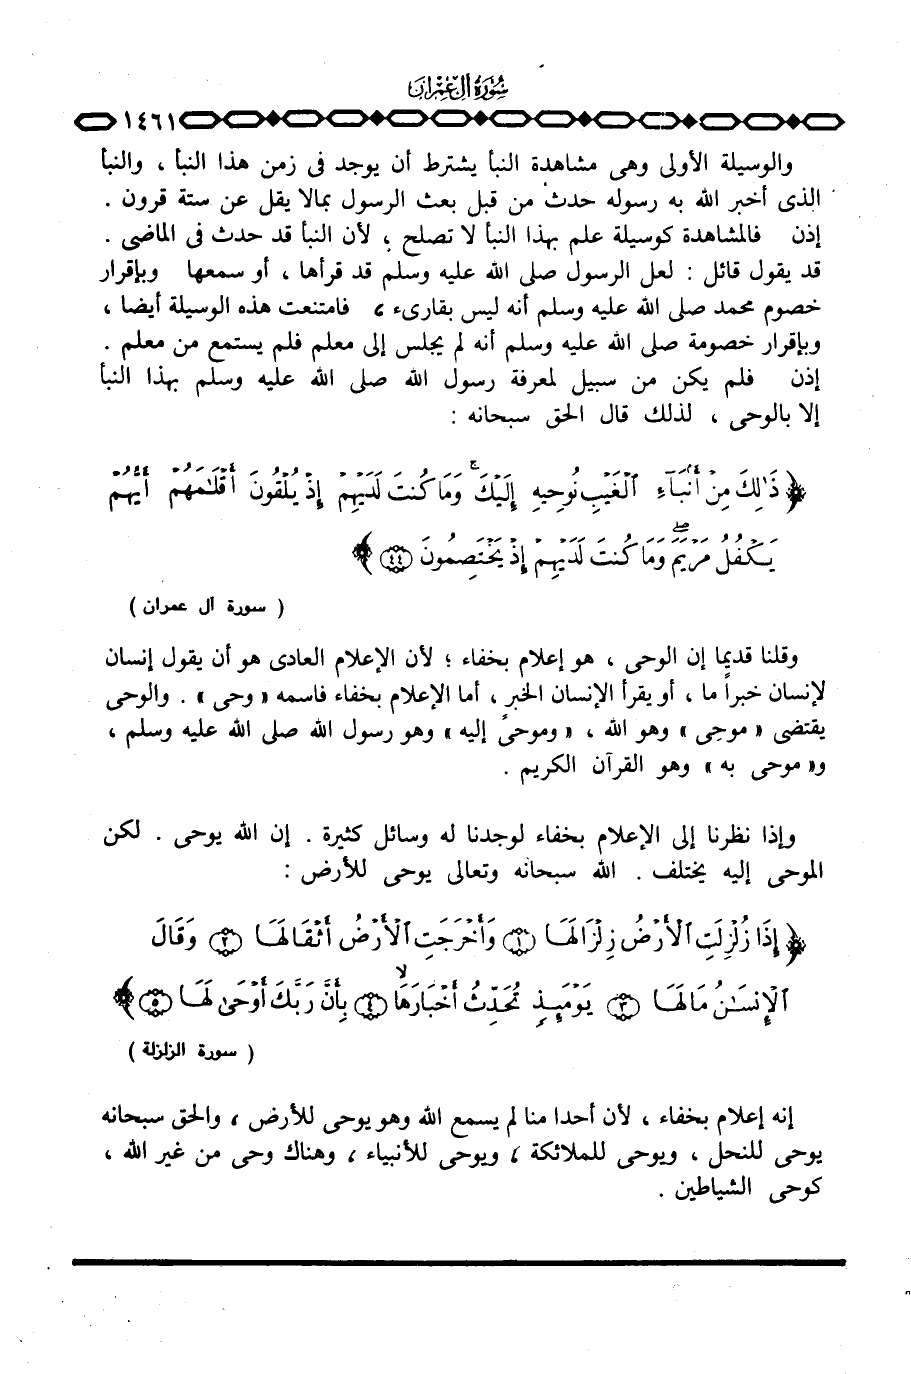 سورة آل عمران
١٤٦١
والوسيلة الأولى وهى مشاهدة النبأ يشترط أن يوجد فى زمن هذا النبأ ، والنبأ
الذى أخبر الله به رسوله حدث من قبل بعث الرسول بمالا يقل عن ستة قرون .
إذن فالمشاهدة كوسيلة علم بهذا النبأ لا تصلح ؛ لأن النبأ قد حدث فى الماضى .
قد يقول قائل : لعل الرسول صلى الله عليه وسلم قد قرأها ، أو سمعها وبإقرار
خصوم محمد صلى الله عليه وسلم أنه ليس بقارىء ، فامتنعت هذه الوسيلة أيضا ،
وبإقرار خصومة صلى الله عليه وسلم أنه لم يجلس إلى معلم فلم يستمع من معلم .
إذن فلم يكن من سبيل لمعرفة رسول الله صلى الله عليه وسلم بهذا النبأ
إلا بالوحى ، لذلك قال الحق سبحانه :
﴿ ذَٰلِكَ مِنْ أَنۢبَآءِ ٱلْغَيْبِ نُوحِيهِ إِلَيْكَ ۚ وَمَا كُنتَ لَدَيْهِمْ إِذْ يُلْقُونَ أَقْلَـٰمَهُمْ أَيُّهُمْ
يَكْفُلُ مَرْيَمَ ۖ وَمَا كُنتَ لَدَيْهِمْ إِذْ يَخْتَصِمُونَ ٤٤ ﴾
( سورة آل عمران )
وقلنا قديما إن الوحى ، هو إعلام بخفاء ؛ لأن الإعلام العادى هو أن يقول إنسان
لإنسان خبراً ما ، أو يقرأ الإنسان الخبر ، أما الإعلام بخفاء فاسمه « وحى » . والوحى
يقتضى « موحِى » وهو الله ، « وموحىً إليه » وهو رسول الله صلى الله عليه وسلم ،
و« موحى به » وهو القرآن الكريم .
وإذا نظرنا إلى الإعلام بخفاء لوجدنا له وسائل كثيرة . إن الله يوحى . لكن
الموحى إليه يختلف . الله سبحانه وتعالى يوحى للأرض :
﴿ إِذَا زُلْزِلَتِ ٱلْأَرْضُ زِلْزَالَهَا ١ وَأَخْرَجَتِ ٱلْأَرْضُ أَثْقَالَهَا ٢ وَقَالَ
ٱلْإِنسَـٰنُ مَا لَهَا ٣ يَوْمَئِذٍ تُحَدِّثُ أَخْبَارَهَا ٤ بِأَنَّ رَبَّكَ أَوْحَىٰ لَهَا ٥ ﴾
( سورة الزلزلة )
إنه إعلام بخفاء ، لأن أحدا منا لم يسمع الله وهو يوحى للأرض ، والحق سبحانه
يوحى للنحل ، ويوحى للملائكة ، ويوحى للأنبياء ، وهناك وحى من غير الله ،
كوحى الشياطين .